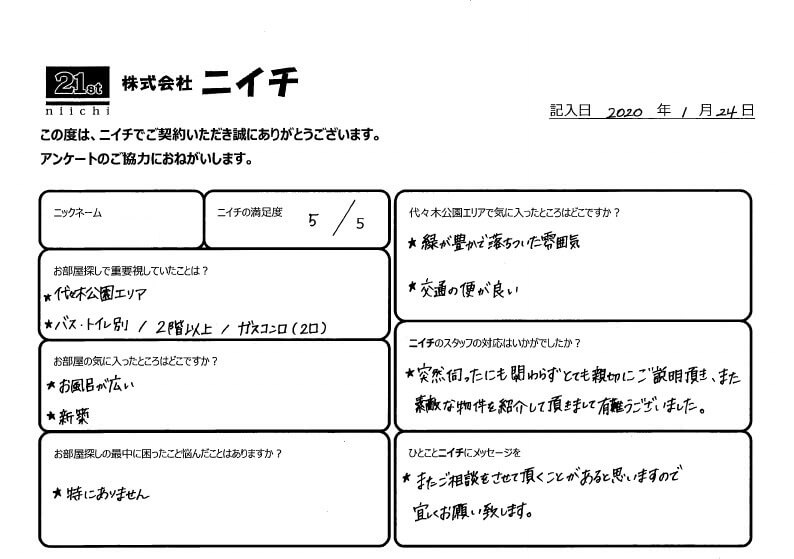 21st
niichi
株式会社 ニイチ
記入日 2020 年 1 月 24 日
この度は、ニイチでご契約いただき誠にありがとうございます。
アンケートのご協力におねがいします。
ニックネーム
ニイチの満足度 5 / 5
お部屋探しで重要視していたことは？
★代々木公園エリア
★バス・トイレ別 / 2階以上 / ガスコンロ(2口)
お部屋の気に入ったところはどこですか？
★お風呂が広い
★新築
お部屋探しの最中に困ったこと悩んだことはありますか？
★特にありません
代々木公園エリアで気に入ったところはどこですか？
★緑が豊かで落ちついた雰囲気
★交通の便が良い
ニイチのスタッフの対応はいかがでしたか？
★突然伺ったにも関わらずとても親切にご説明頂き、また
素敵な物件を紹介して頂きまして有難うございました。
ひとことニイチにメッセージを
★またご相談をさせて頂くことがあると思いますので
宜しくお願い致します。